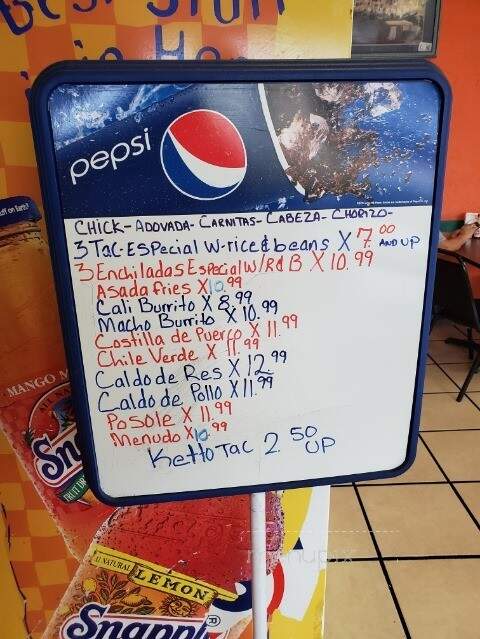 pepsi
CHICK- ADOVADA- CARNITAS- CABEZA- CHORIZO-
3 Tac-ESPecial W-rice & beans X 7.00 AND UP
3 Enchiladas Especial W/R&B X 10.99
Asada fries X10.99
Cali Burrito X 8.99
Macho Burrito X 10.99
Costilla de Puerco X 11.99
Chile Verde X 11.99
Caldo de Res X 12.99
Caldo de Pollo X 11.99
Posole X 11.99
Menudo X10.99
Ketto Tac 2.50 UP
MANGO
Sn
LEMON
Snapple
menupix